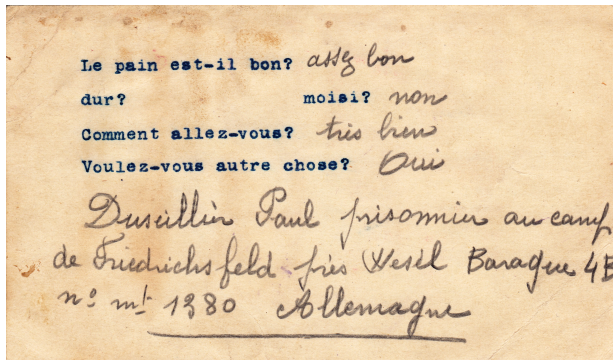 Le pain est-il bon? assez bon
dur? moisi? non
Comment allez-vous? très bien
Voulez-vous autre chose? Oui
Duseillier Paul prisonnier au camp
de Friedrichsfeld près Wesel Baraque 4B
n° mle 1380 Allemagne